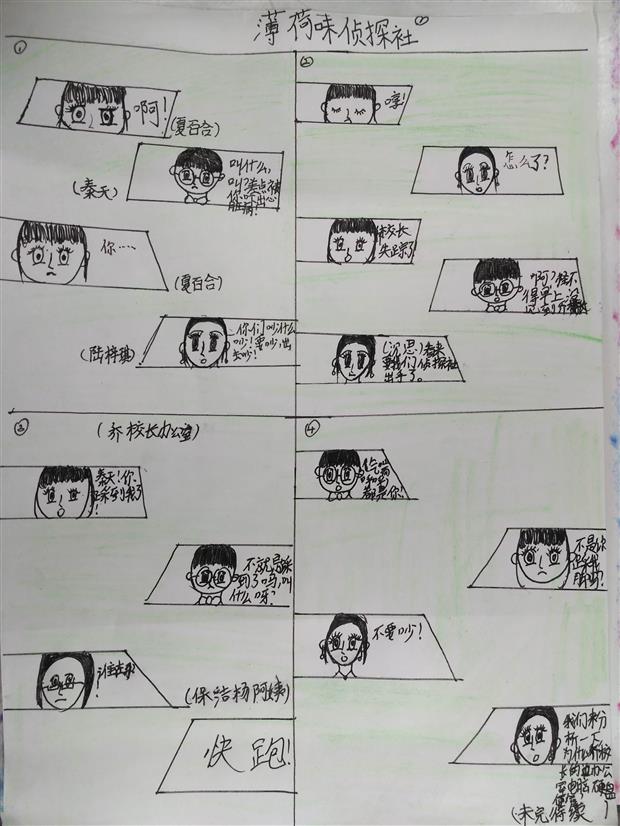 薄荷味侦探社①
①
啊!
(夏百合)
叫什么,
叫?差点被
你吓出心
脏病!
(秦天)
你……
(夏百合)
你们叫什么
吵!要吵出
去吵!
(陆梓琪)
②
哼!
怎么了?
乔校长
失踪了
啊?怪不
得早上没
见到乔校长
(沉思)看来
要我们侦探社
出手了。
③
(乔校长办公室)
秦天!你
踩到我了
!
不就是踩
到了吗,叫
什么呀?
谁在那
!
(保洁杨阿姨)
快跑!
④
都是你
不是你
踩我
脚吗?
不要吵!
我们来分
析一下
为什么乔校
长的
(未完待续)